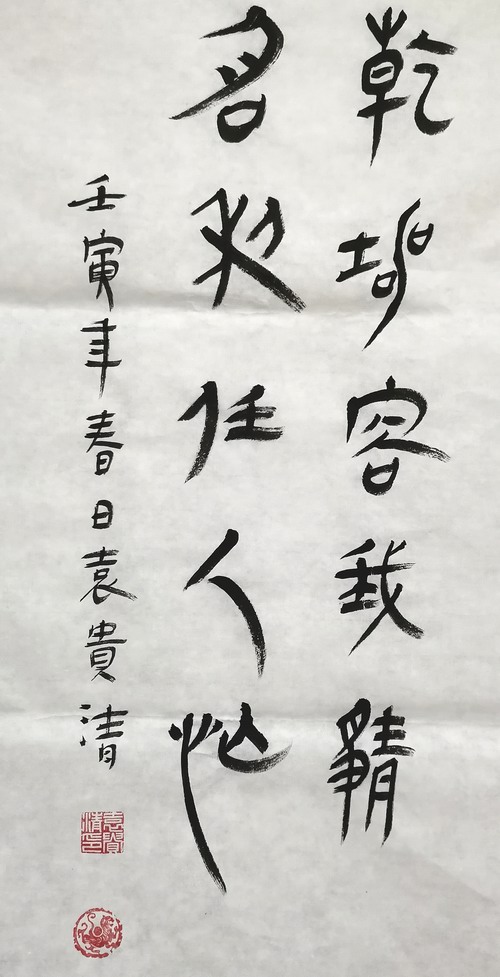 乾坤容我靜
名利任人忙
壬寅年春日袁貴清
袁貴清印